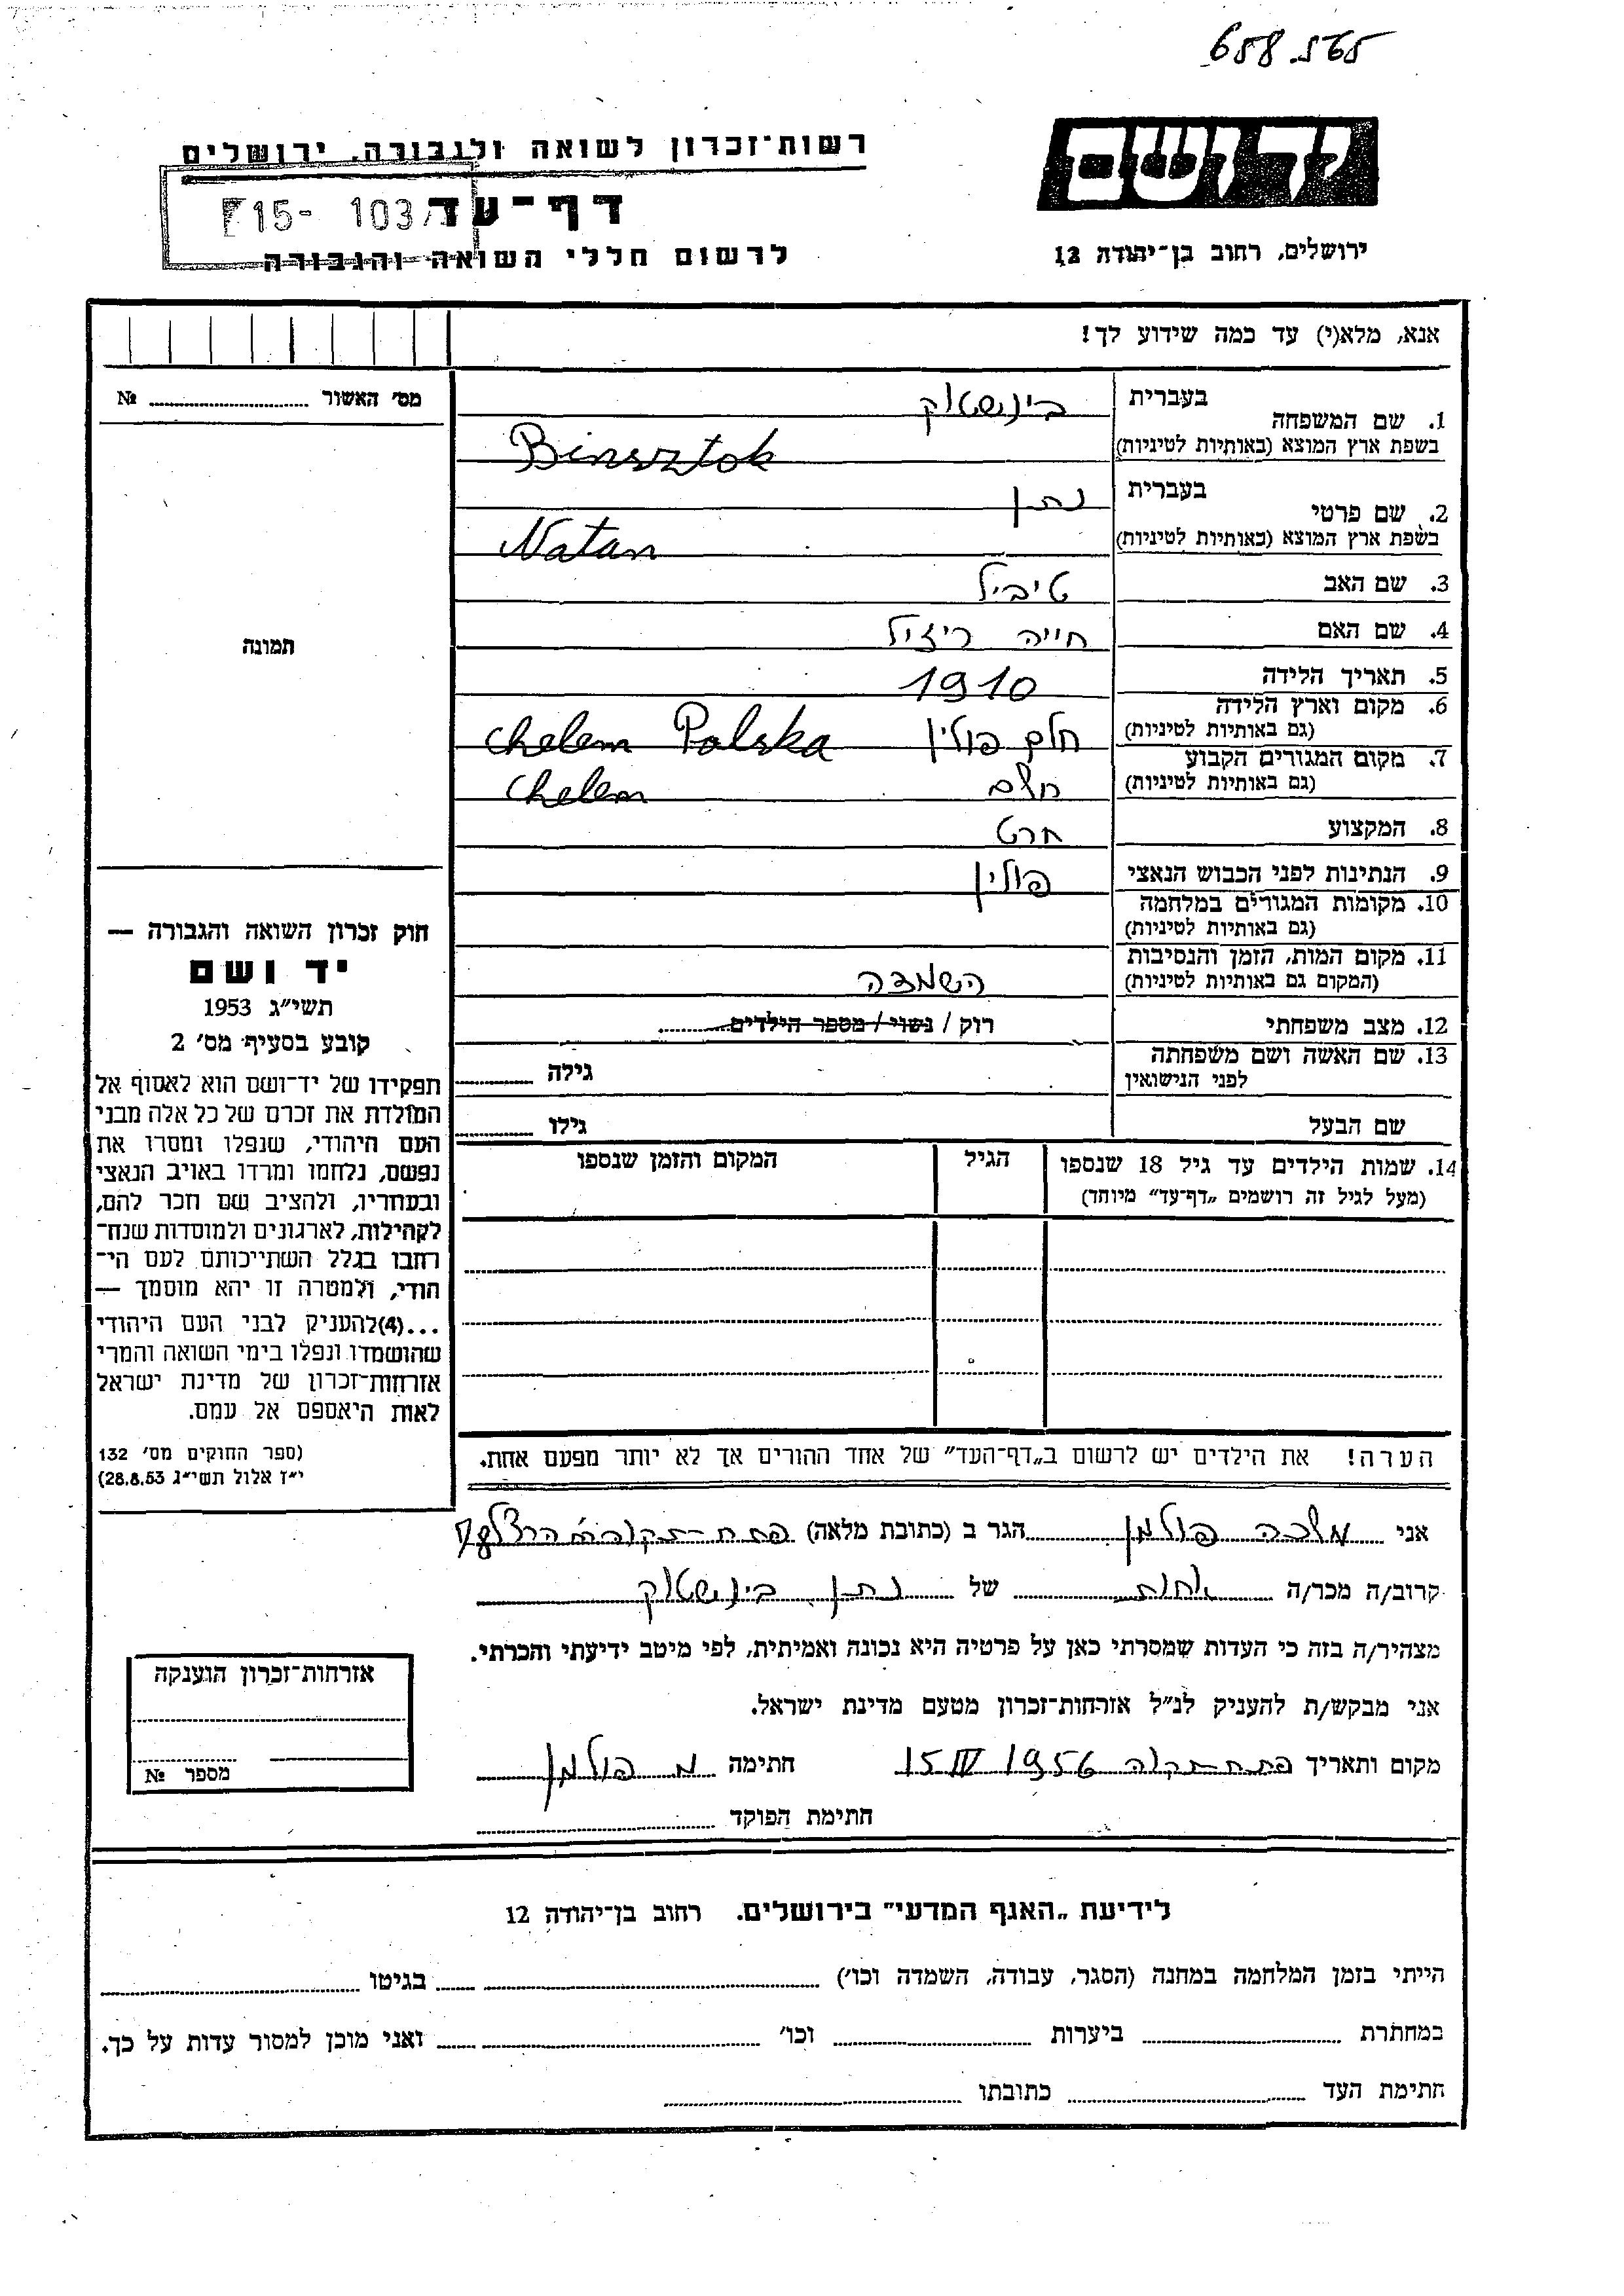 658.565
רשות־זכרון לשואה ולגבורה, ירושלים
יד ושם
דף־עד
F15- 103
לרשום חללי השואה והגבורה
ירושלים, רחוב בן־יהודה 12
אנא, מלא(י) עד כמה שידוע לך!
מס׳ האשור № 
1. שם המשפחה בעברית בינשטוק
בשפת ארץ המוצא (באותיות לטיניות) Binsztok
2. שם פרטי בעברית נתן
בשפת ארץ המוצא (באותיות לטיניות) Natan
3. שם האב טיביל
4. שם האם חייה רייזל
תמונה
5. תאריך הלידה 1910
6. מקום וארץ הלידה
(גם באותיות לטיניות) חלם פולין Chelem Polska
7. מקום המגורים הקבוע
(גם באותיות לטיניות) חלם Chelem
8. המקצוע חרט
9. הנתינות לפני הכבוש הנאצי פולין
10. מקומות המגורים במלחמה
(גם באותיות לטיניות)
11. מקום המות, הזמן והנסיבות
(המקום גם באותיות לטיניות) השמדה
12. מצב משפחתי רוק / נשוי / מספר הילדים
13. שם האשה ושם משפחתה
לפני הנישואין גילה
שם הבעל גילו
14. שמות הילדים עד גיל 18 שנספו הגיל המקום והזמן שנספו
(מעל לגיל זה רושמים „דף־עד״ מיוחד)
חוק זכרון השואה והגבורה —
יד ושם
תשי״ג 1953
קובע בסעיף מס׳ 2
תפקידו של יד־ושם הוא לאסוף אל
המולדת את זכרם של כל אלה מבני
העם היהודי, שנפלו ומסרו את
נפשם, נלחמו ומרדו באויב הנאצי
ובעוזריו, ולהציב שם וזכר להם,
לקהילות, לארגונים ולמוסדות שנח־
רחבו בגלל השתייכותם לעם הי־
הודי, ולמטרה זו יהא מוסמך —
...(4) להעניק לבני העם היהודי
שהושמדו ונפלו בימי השואה והמרי
אזרחות־זכרון של מדינת ישראל
לאות היאספם אל עמם.
(ספר החוקים מס׳ 132
י״ז אלול תשי״ג 28.8.53)
הערה! את הילדים יש לרשום ב„דף־העד״ של אחד ההורים אך לא יותר מפעם אחת.
אני מלכה פולמן הגר ב (כתובת מלאה) פתח־תקוה
קרוב/ה מכר/ה אחות של נתן בינשטוק
מצהיר/ה בזה כי העדות שמסרתי כאן על פרטיה היא נכונה ואמיתית, לפי מיטב ידיעתי והכרתי.
אני מבקש/ת להעניק לנ״ל אזרחות־זכרון מטעם מדינת ישראל.
מקום ותאריך פתח־תקוה 15 IV 1956 חתימה מ פולמן
חתימת הפוקד
אזרחות־זכרון הוענקה
מספר №
לידיעת „האגף המדעי״ בירושלים. רחוב בן־יהודה 12
הייתי בזמן המלחמה במחנה (הסגר, עבודה, השמדה וכו׳) בגיטו
במחתרת ביערות וכו׳ ואני מוכן למסור עדות על כך.
חתימת העד כתובתו